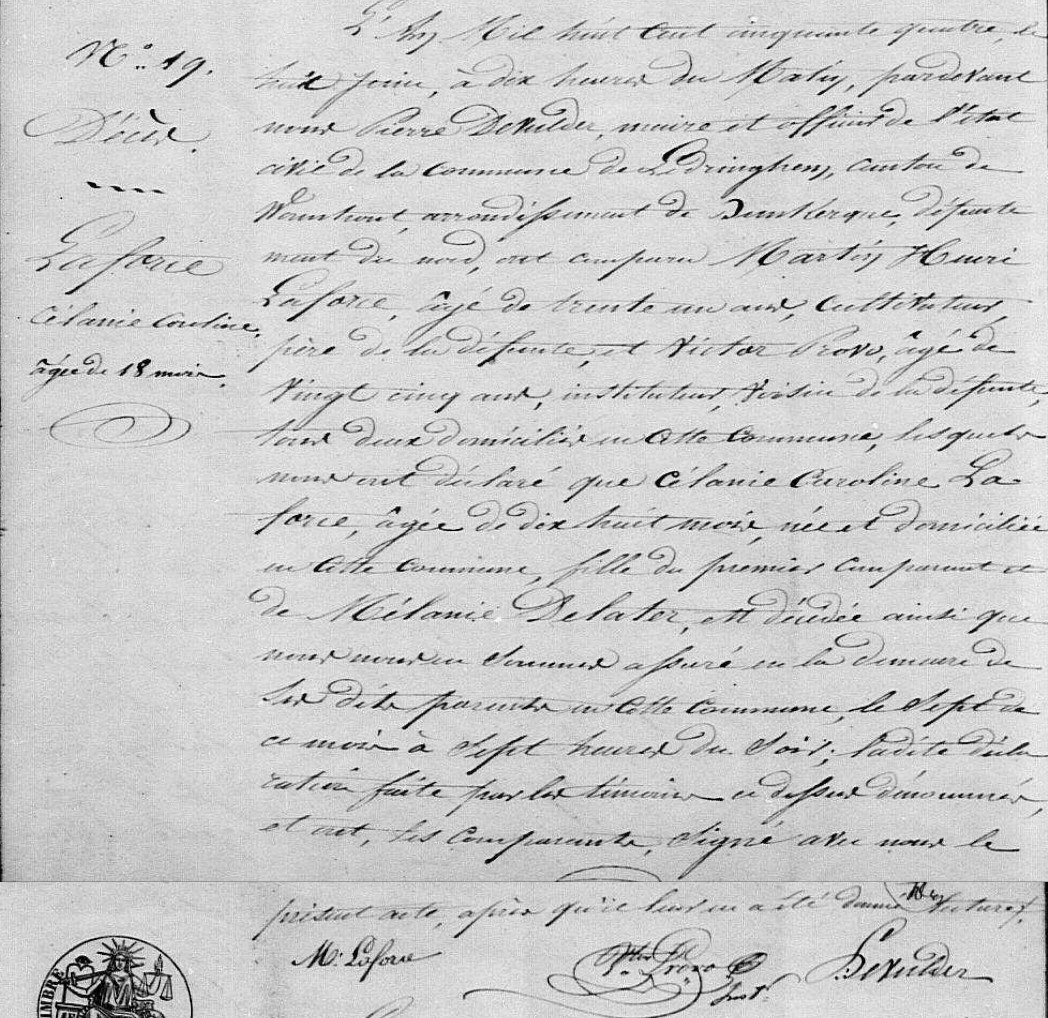 N.° 19.
Décès.
Laforce
Célanie Caroline,
âgée de 18 mois.
L'An Mil huit cent cinquante quatre, le
huit Juin, à dix heures du Matin, pardevant
nous Pierre Devulder, maire et officier de l'état
civil de la commune de Ledringhem, canton de
Wormhout, arrondissement de Dunkerque, départe
ment du nord, ont comparu Martin Henri
Laforce, âgé de trente un ans, cultivateur,
père de la défunte, et Victor Provo, âgé de
Vingt cinq ans, instituteur, voisin de la défunte,
tous deux domiciliés en cette commune, lesquels
nous ont déclaré que Célanie Caroline La
force, âgée de dix huit mois, née et domiciliée
en cette commune, fille du premier comparant et
de Mélanie Delater, est décédée ainsi que
nous nous en sommes assuré en la demeure de
ses dits parents en cette commune, le sept de
ce mois à sept heures du soir; ladite décla
ration faite par les témoins ci dessus dénommés,
et ont, les comparants, signé avec nous le
présent acte, après qu'il leur en a été donné lecture.
M. Laforce
Vtor Provo
Inst.
Devulder
TIMBRE